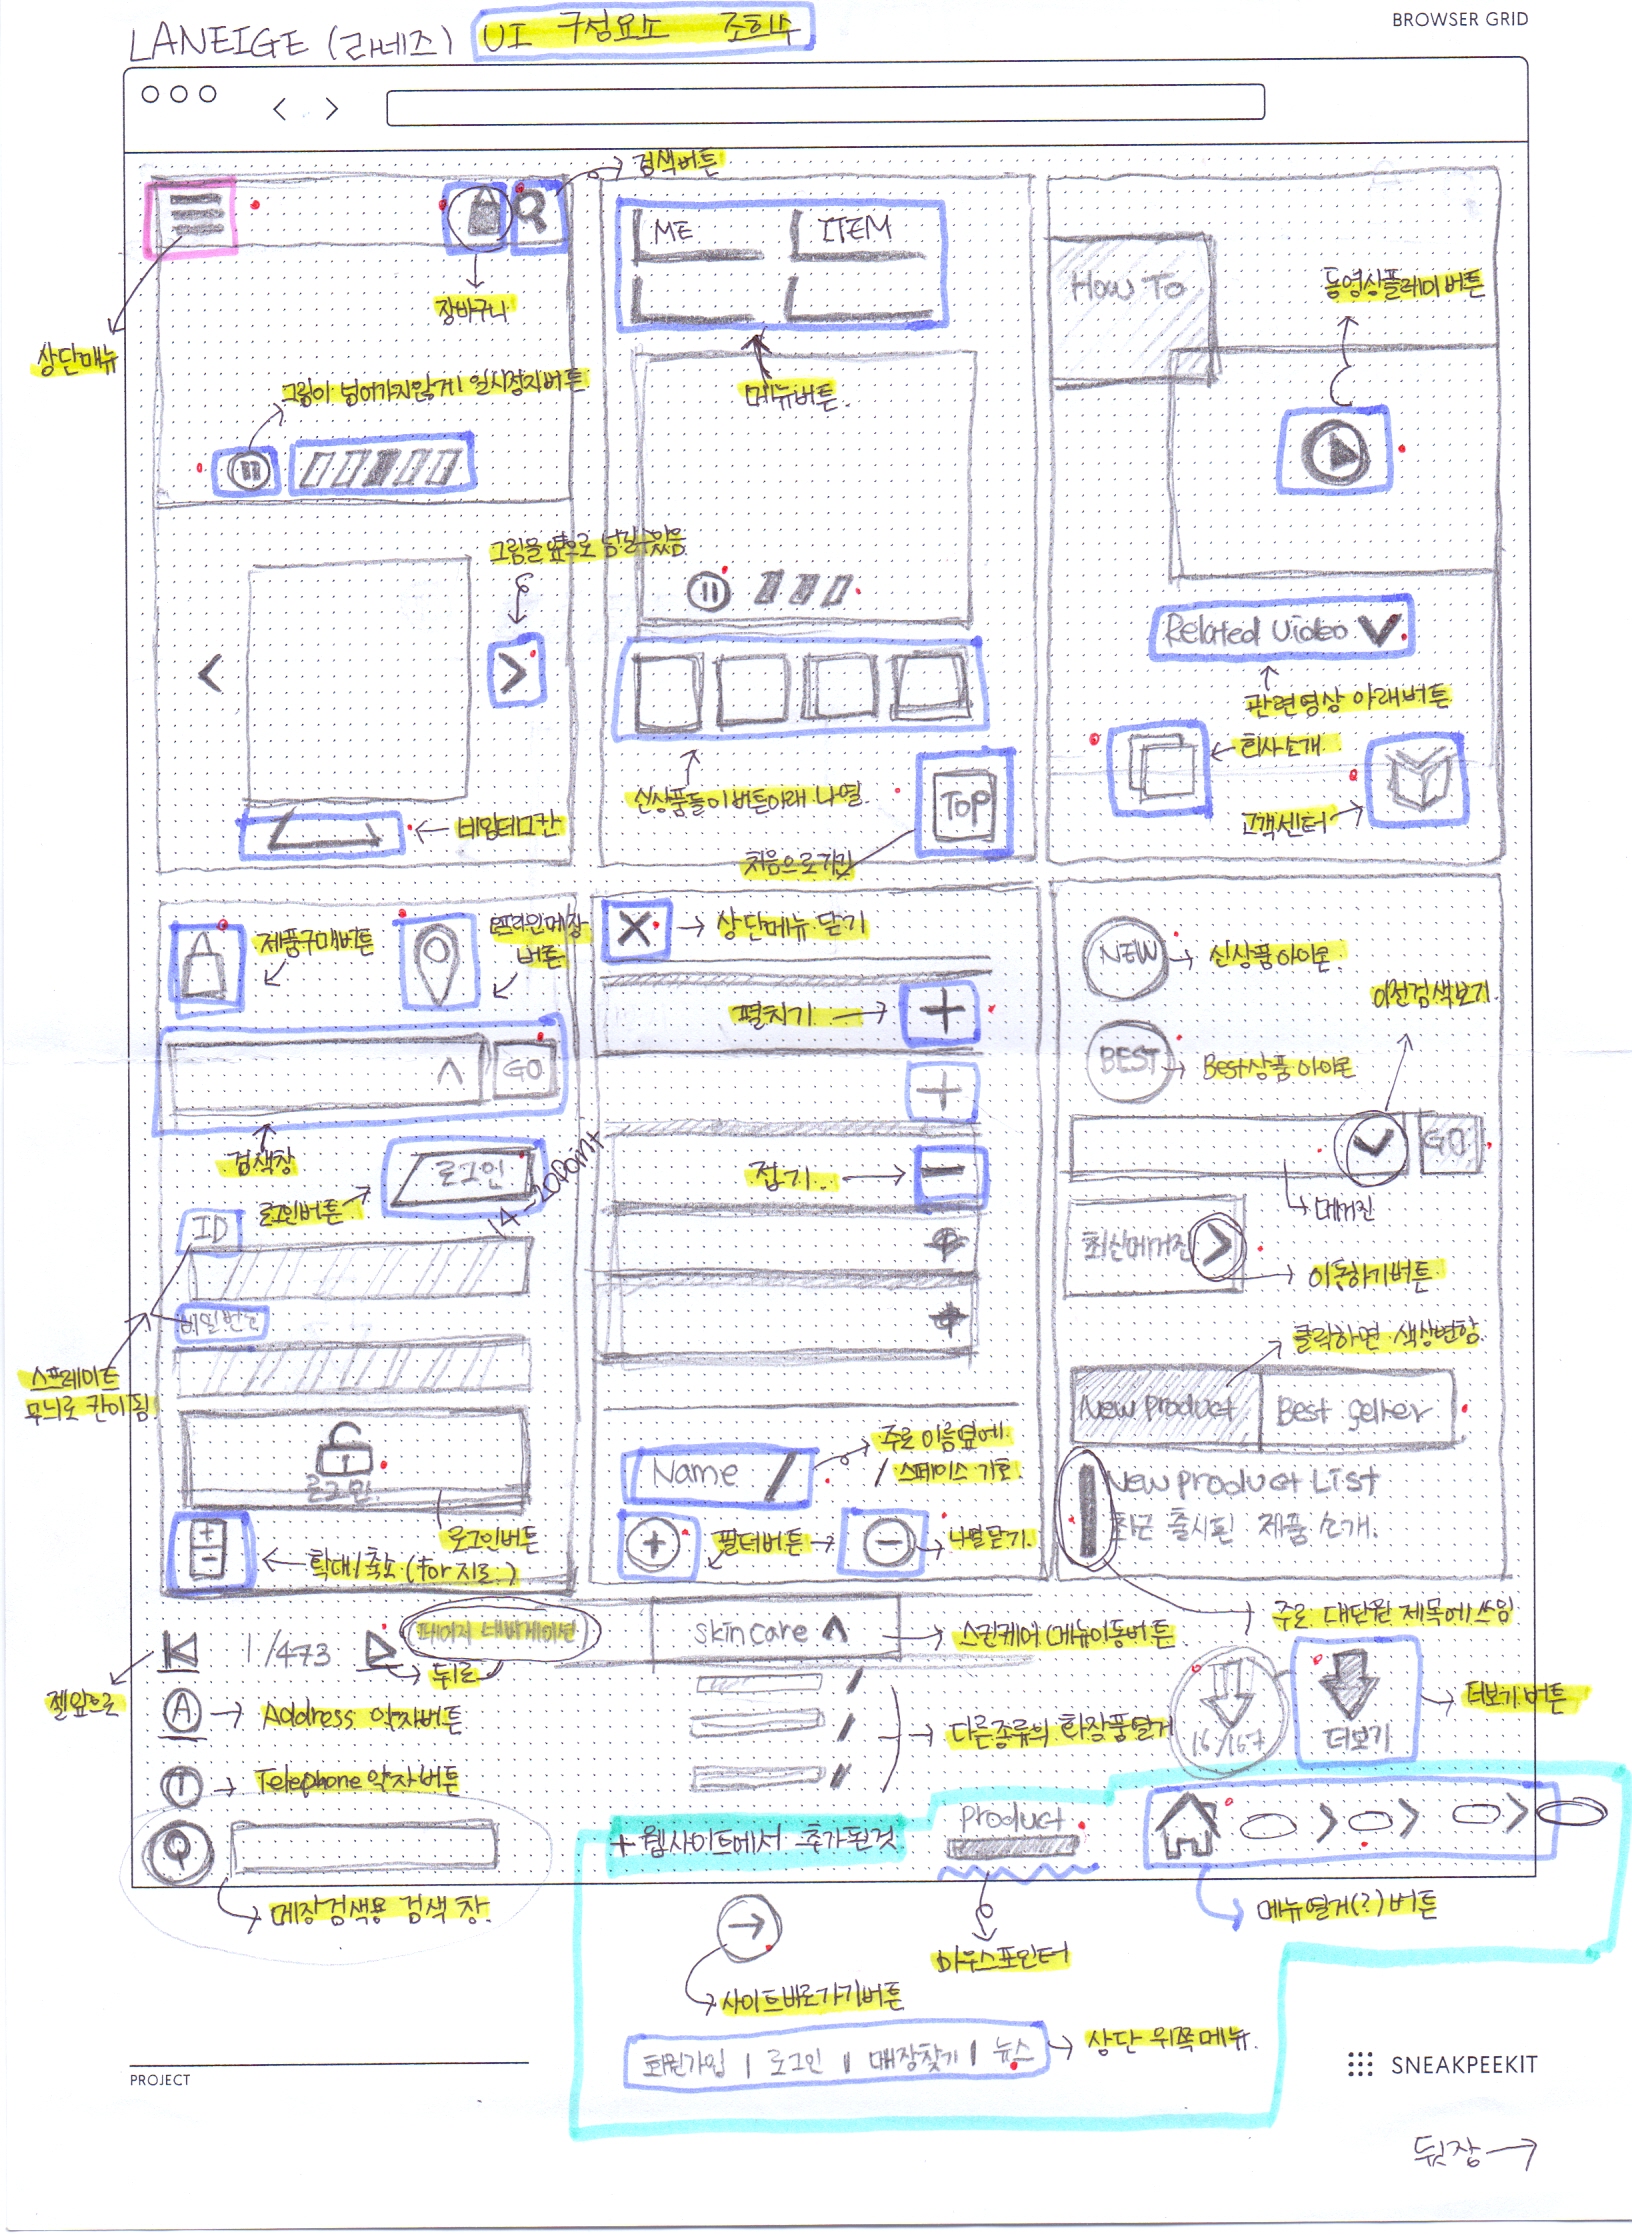 LANEIGE (라네즈) UI 구성요소 조희수
BROWSER GRID
검색버튼
장바구니
상단메뉴
그림이 넘어가지않게 일시정지버튼
그림을 옆으로 넘길수있음
ME
ITEM
메뉴버튼
신상품들이 버튼아래 나열
TOP
처음으로가기
How To
동영상플레이버튼
Related Video
관련영상 아래버튼
회사소개
고객센터
제품구매버튼
오프라인매장
버튼
GO
검색창
로그인
로그인버튼
14-20point
ID
비밀번호
스프레이트
무늬로 칸이 됨
로그인
로그인버튼
+
-
확대/축소 (for 지도)
X
상단메뉴 닫기
펼치기
+
+
접기
Name /
주로 이름옆에
/ 스페이스 기호
+
필터버튼
-
나열닫기
NEW
신상품아이콘
이전검색보기
BEST
Best상품 아이콘
GO
매거진
최신매거진
이동하기버튼
클릭하면 색상변함
New Product
Best Seller
New Product List
최근 출시된 제품 소개.
주로 대단원 제목에 쓰임
1/473
페이지 내비게이션
뒤로
젤앞으로
A
Address 약자버튼
T
Telephone 약자버튼
매장검색용 검색창.
Skin care
스킨케어 메뉴이동버튼
다른종류의 화장품열거
16/167
더보기
더보기 버튼
+ 웹사이트에서 추가된것
Product
마우스포인터
메뉴열거(?)버튼
사이트바로가기버튼
회원가입 | 로그인 | 매장찾기 | 뉴스
상단 위쪽메뉴.
PROJECT
SNEAKPEEKIT
뒷장→